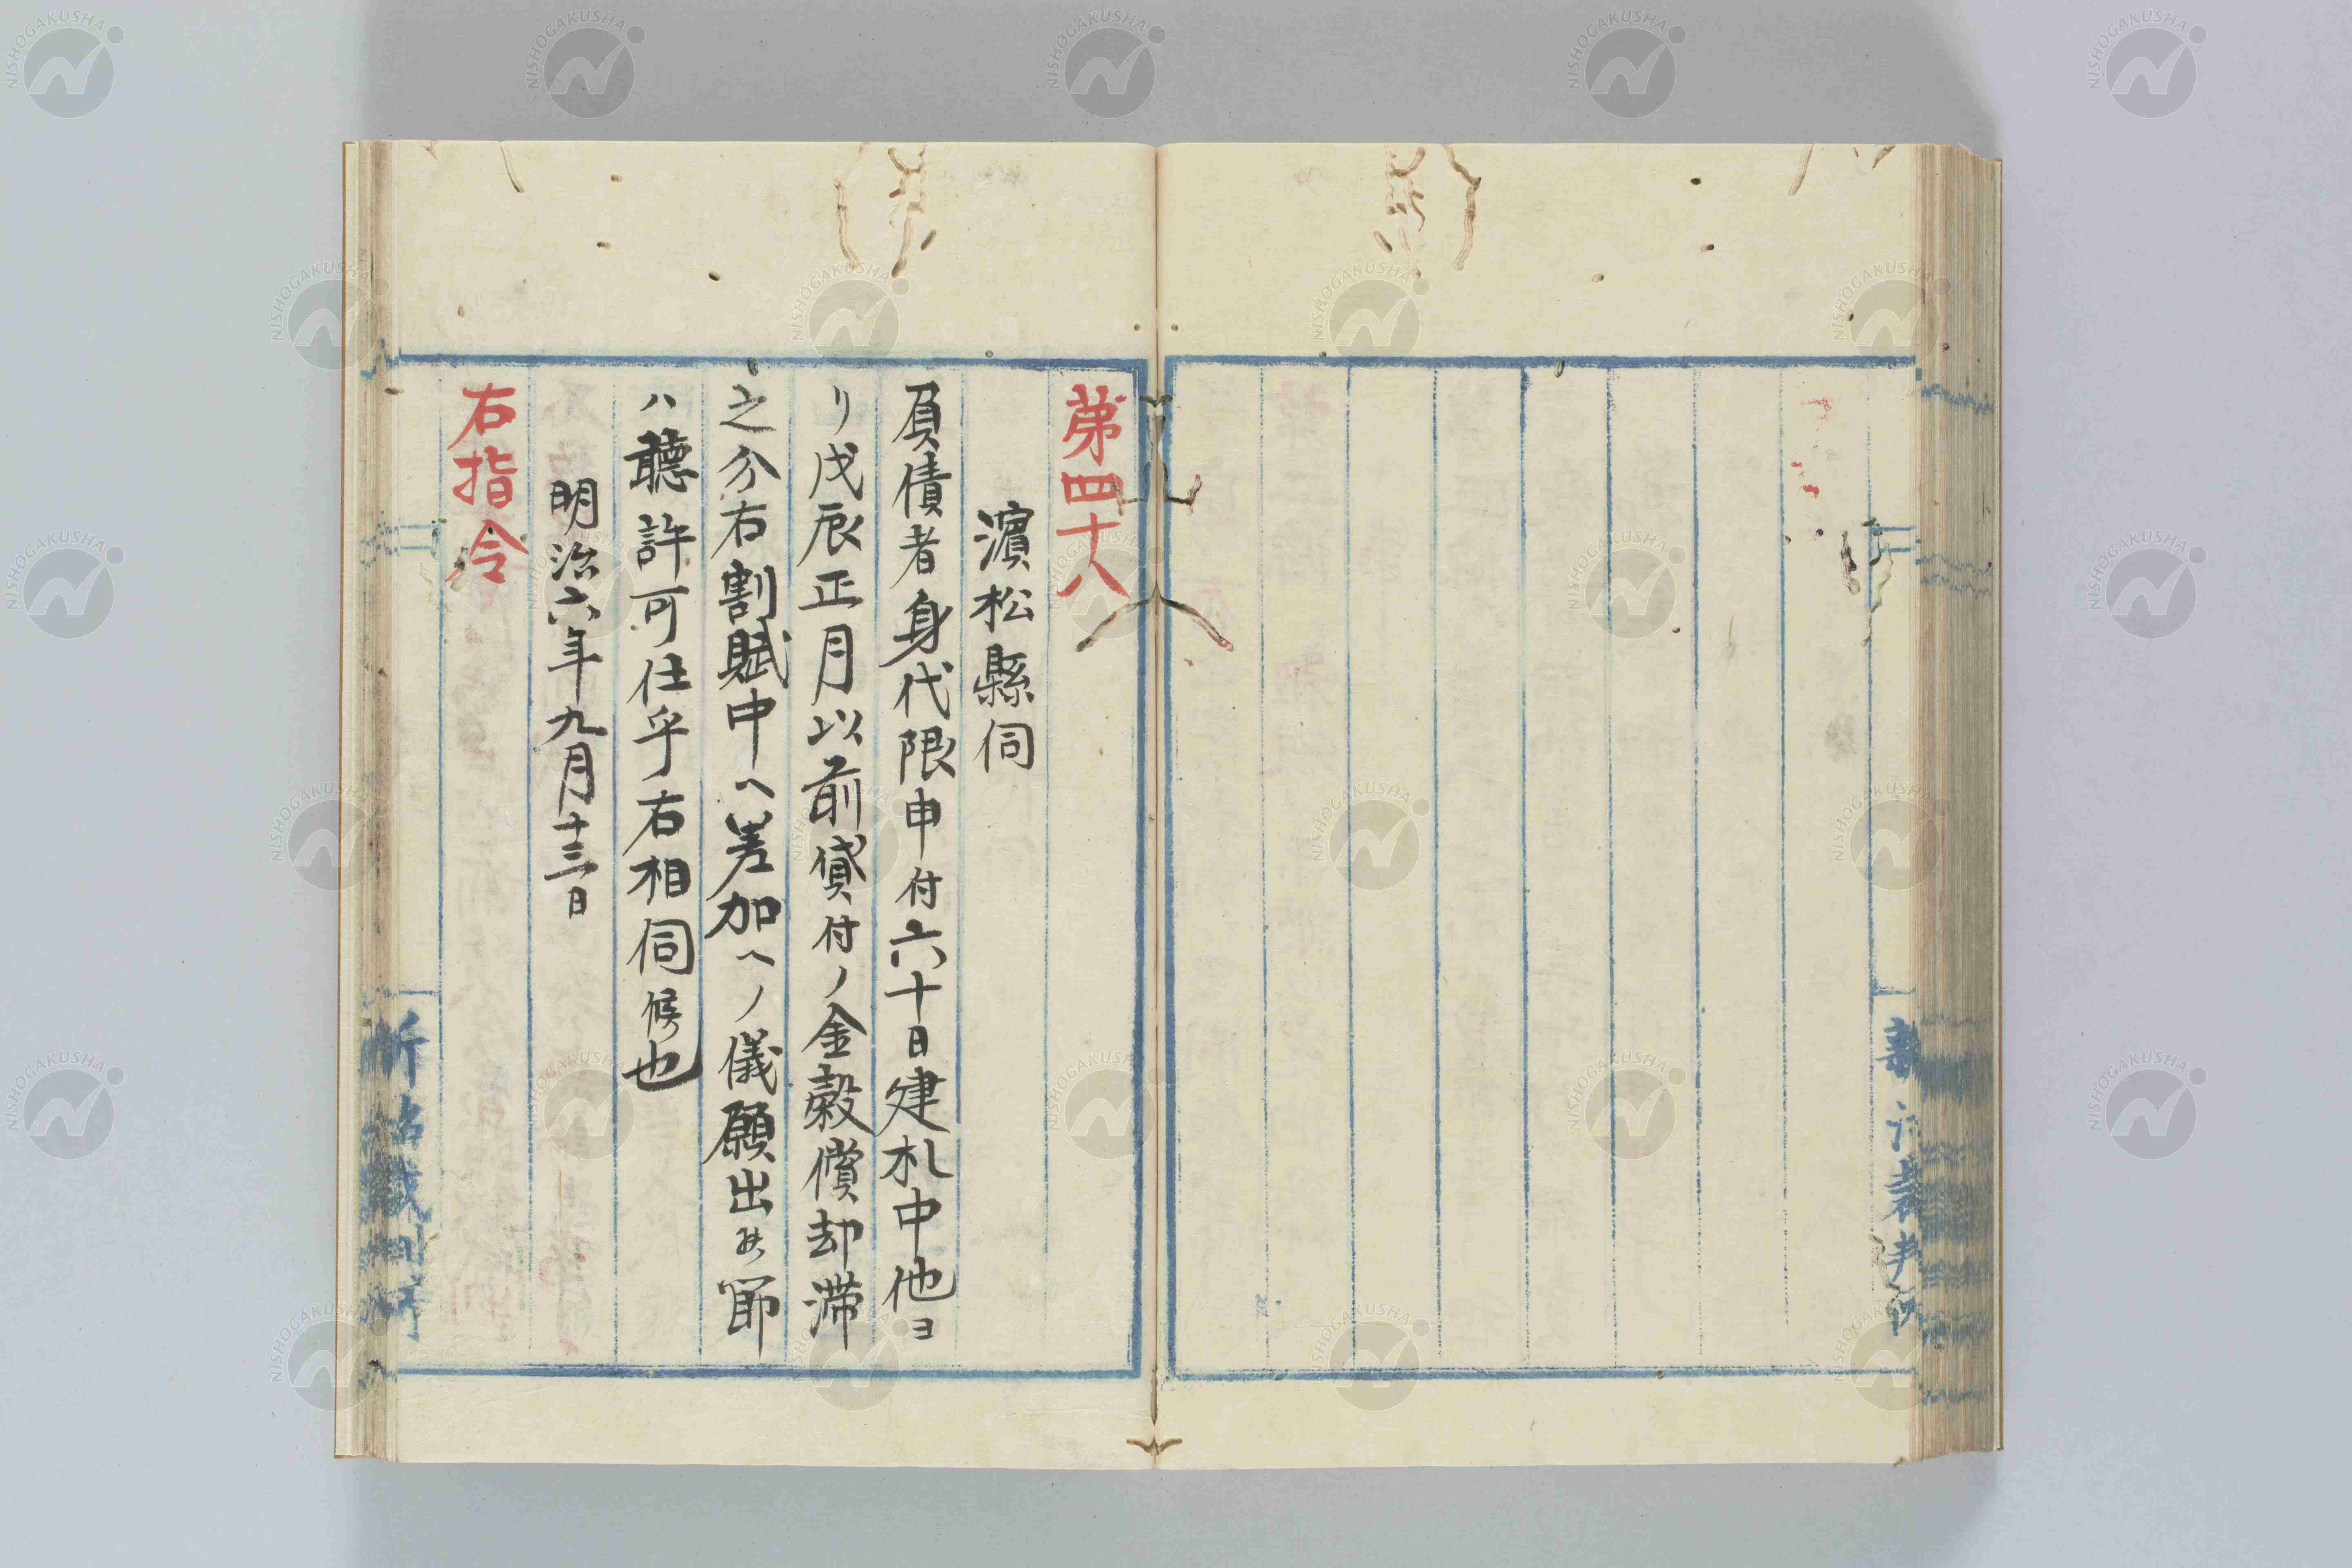 第四十八
濱松縣伺
負債者身代限申付六十日建札中他ヨ
リ戊辰正月以前貸付ノ金穀償却滞
之分右割賦中ヘ差加ヘノ儀願出候節
ハ聽許可仕乎右相伺候也
明治六年九月十三日
右指令
NISHOGAKUSHA